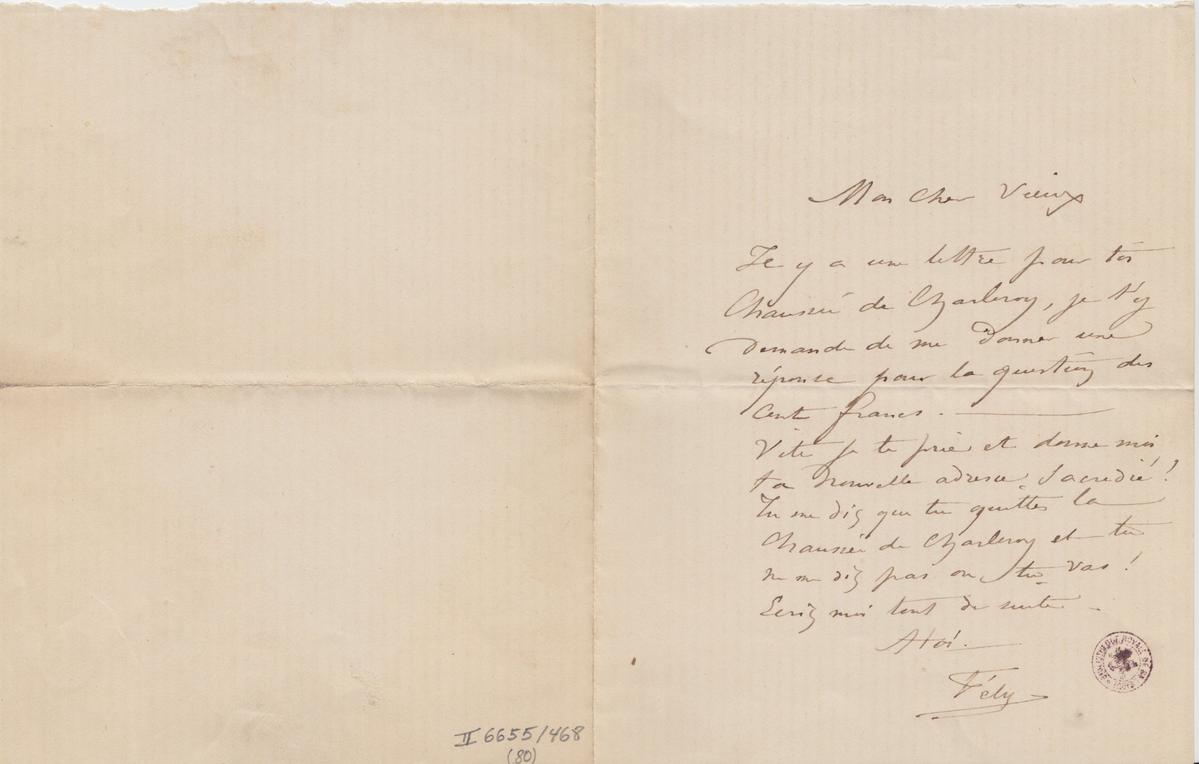 Mon cher Vieux
Il y a une lettre pour toi
Chaussée de Charleroy, je t'y
demande de me donner une
réponse pour la question des
cent francs. —
Vite je te prie et donne moi
ta nouvelle adresse, Sacredié !
Tu me dis que tu quittes la
Chaussée de Charleroy et tu
ne me dis pas où tu vas !
Ecris moi tout de suite —
A toi. —
Fély
II 6655/468
(80)